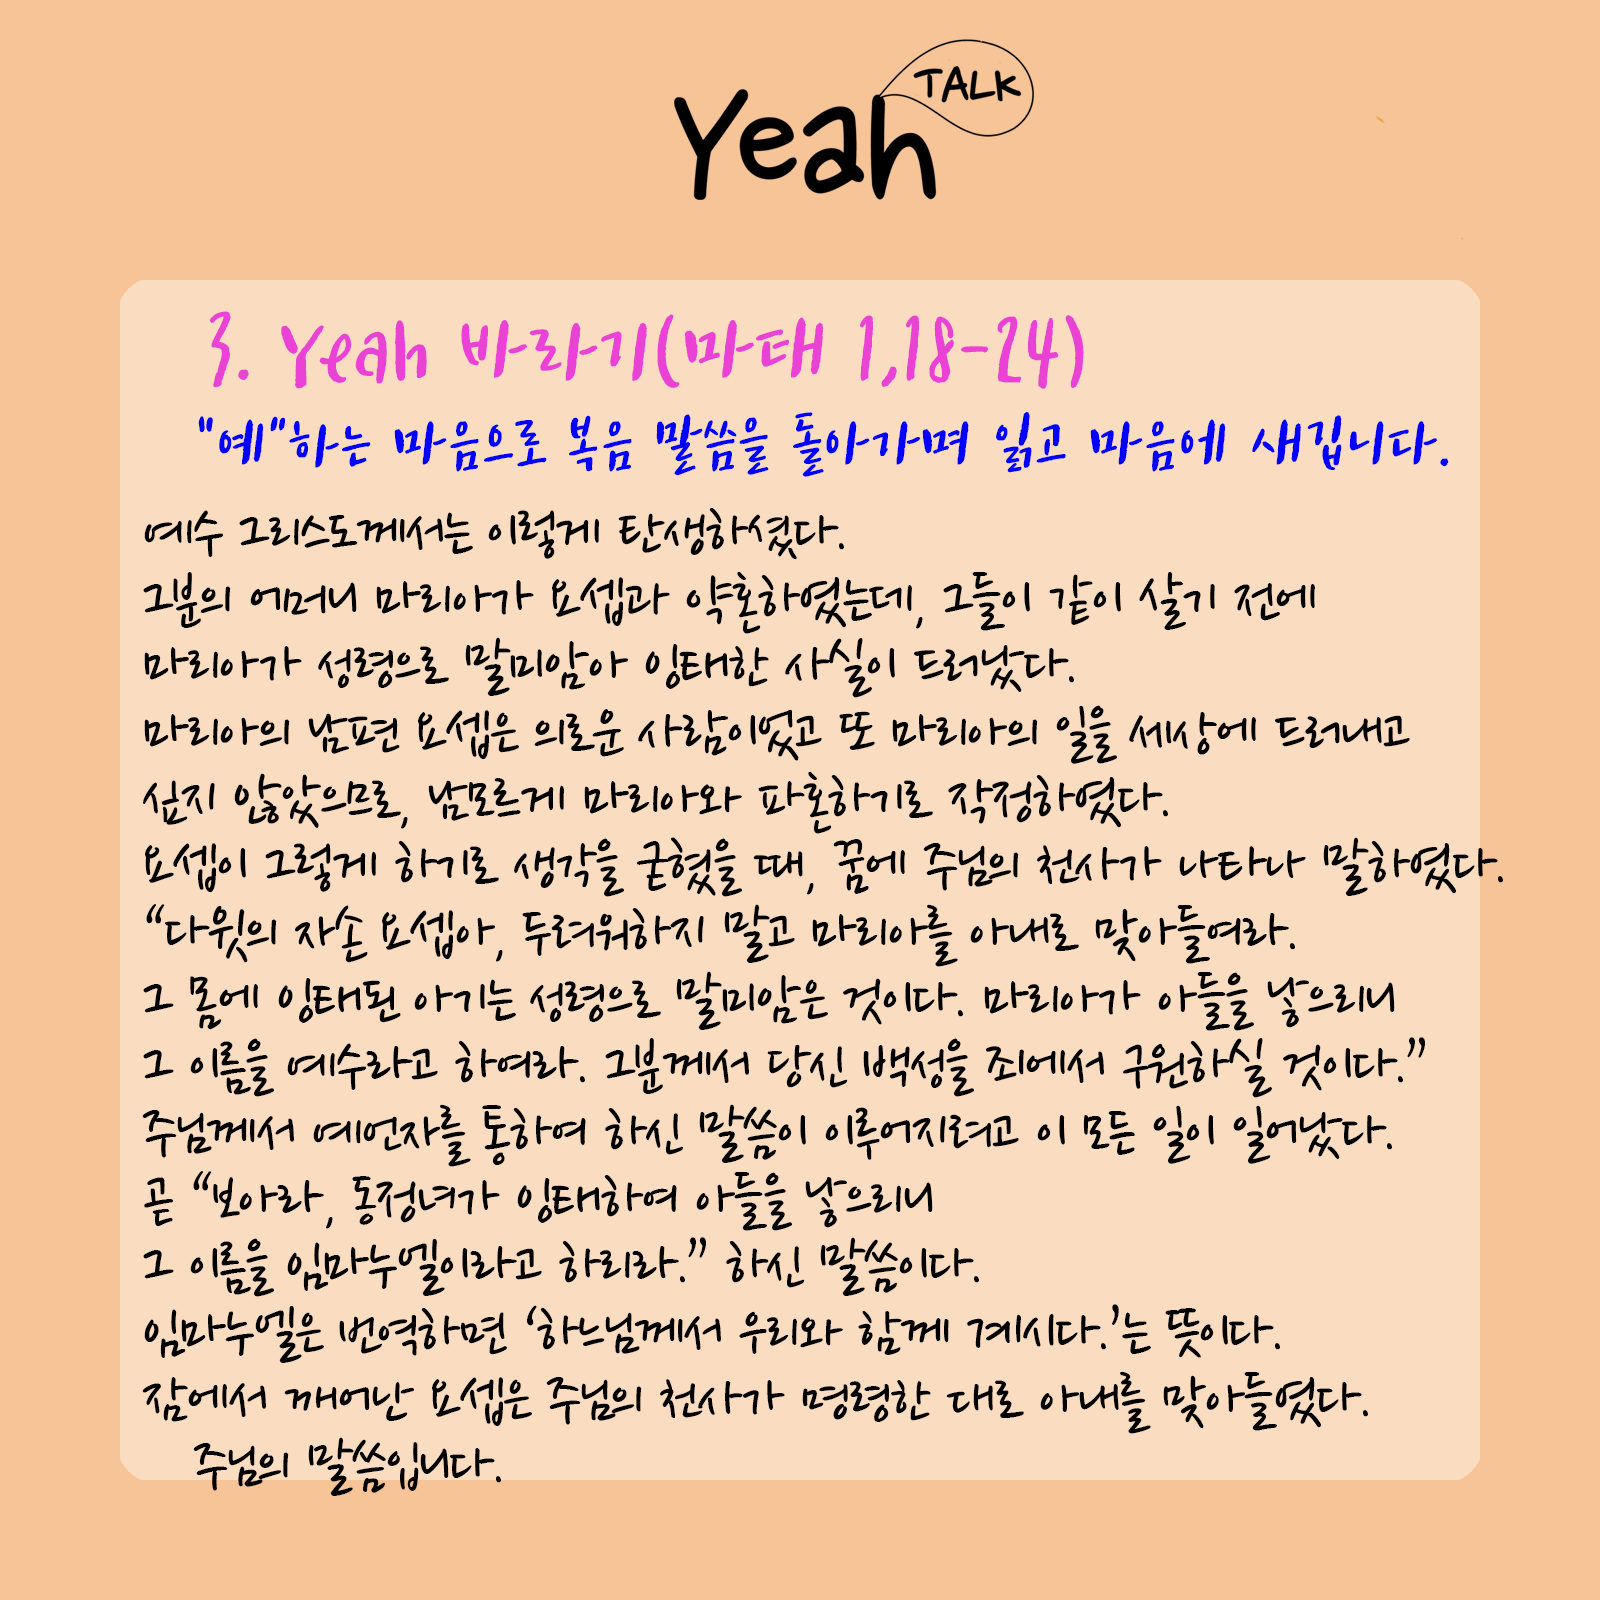 Yeah TALK
3. Yeah 바라기(마태 1,18-24)
"예"하는 마음으로 복음 말씀을 돌아가며 읽고 마음에 새깁니다.
예수 그리스도께서는 이렇게 탄생하셨다.
그분의 어머니 마리아가 요셉과 약혼하였는데, 그들이 같이 살기 전에
마리아가 성령으로 말미암아 잉태한 사실이 드러났다.
마리아의 남편 요셉은 의로운 사람이었고 또 마리아의 일을 세상에 드러내고
싶지 않았으므로, 남모르게 마리아와 파혼하기로 작정하였다.
요셉이 그렇게 하기로 생각을 굳혔을 때, 꿈에 주님의 천사가 나타나 말하였다.
“다윗의 자손 요셉아, 두려워하지 말고 마리아를 아내로 맞아들여라.
그 몸에 잉태된 아기는 성령으로 말미암은 것이다. 마리아가 아들을 낳으리니
그 이름을 예수라고 하여라. 그분께서 당신 백성을 죄에서 구원하실 것이다.”
주님께서 예언자를 통하여 하신 말씀이 이루어지려고 이 모든 일이 일어났다.
곧 “보아라, 동정녀가 잉태하여 아들을 낳으리니
그 이름을 임마누엘이라고 하리라.” 하신 말씀이다.
임마누엘은 번역하면 ‘하느님께서 우리와 함께 계시다.’는 뜻이다.
잠에서 깨어난 요셉은 주님의 천사가 명령한 대로 아내를 맞아들였다.
주님의 말씀입니다.